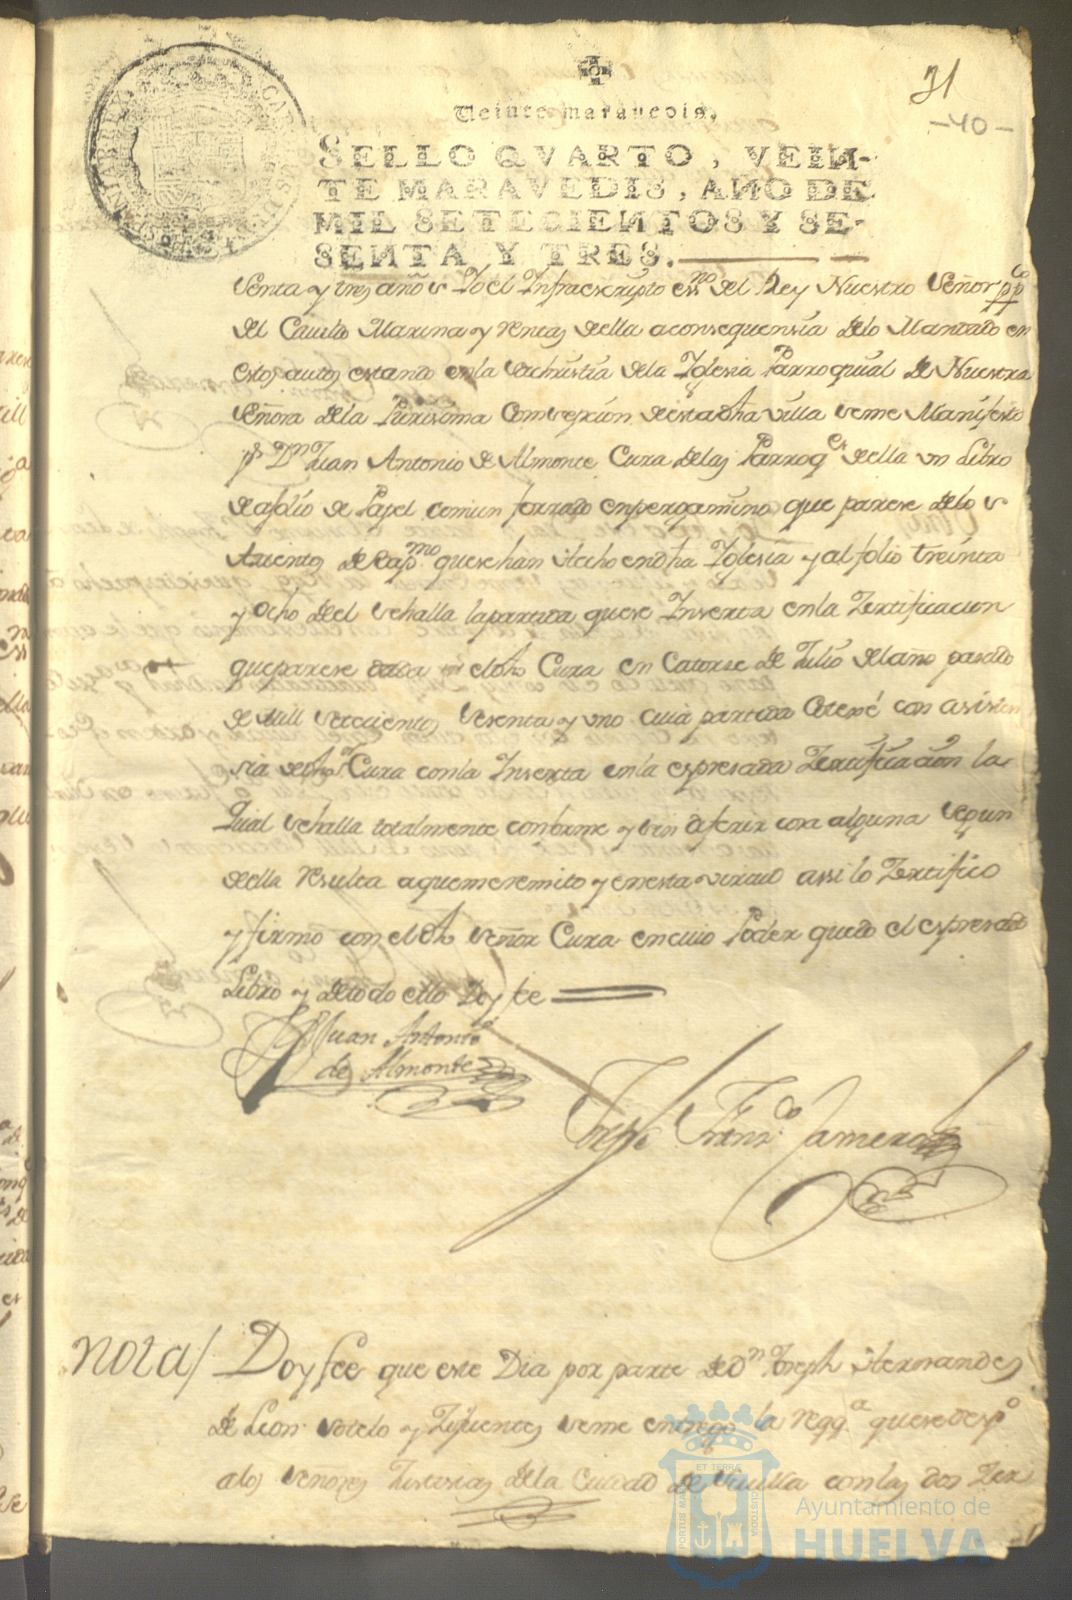 31
-40-
Veinte maravedis.
SELLO QVARTO, VEIN-
TE MARAVEDIS, AÑO DE
MIL SETECIENTOS Y SE-
SENTA Y TRES.
senta y tres años Yo el Infraescripto essno del Rey Nuestro Señor ppco
del Cavildo Marina y rentas della a consequensia delo Mandado en
estos autos estando en la sachristia dela Iglesia Parroquial de Nuestra
Señora dela Purissima Comsepsion desta dha villa seme Manifesto
pr Dn Juan Antonio de Almonte Cura delas Parroqes della un Libro
de afolio de Papel comun forrado en pergamino que parese delos
Asientos de Bapmo que se han hecho en dha Iglesia y al folio treinta
y ocho del se halla la partida que se Inserta en la Zertificacion
que parese dada el dho Cura en Catorse de Julio del año pasado
de mill setecientos sesenta y uno cuia partida Cotexé con asisten
sia de dho sr Cura con la Inserta en la espresada Zertificacion la
Qual se halla totalmente conforme y sin diferir cosa alguna segun
della resulta a que me remito y en esta virtud assi lo Zertifico
y firmo con el dho Señor Cura en cuio Poder quedo el espresado
Libro y de todo ello Doy fee
Juan Antonio
de Almonte
Joseph Frndo Camero
nota/ Doy fee que este Dia por parte de Dn Joseph Hernandes
de Leon Sotelo y Zifuentes seme entregó la reqqa que se despo
alos Señores Justisias dela Ciudad de Sevilla con las dos Zer
ET TERRAE
CUSTODIA
PORTUS MARIS
Ayuntamiento de
HUELVA